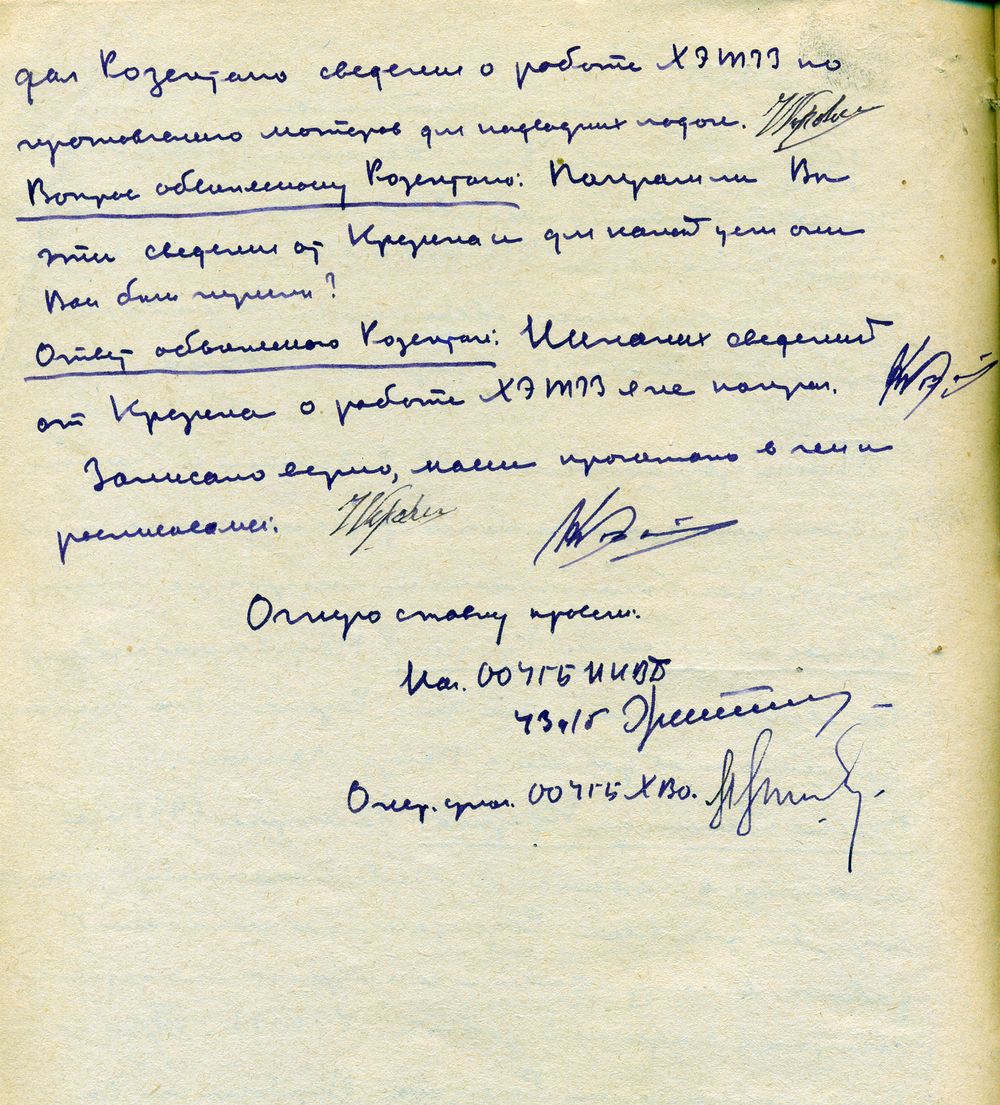 дал Розенталю сведения о работе ХЭТЗ по
изготовлению моторов для подводных лодок.
Вопрос обвиняемому Розенталю: Получали ли Вы
эти сведения от и для какой цели они
Вам были нужны?
Ответ обвиняемого Розенталя: Никаких сведений
от о работе ХЭТЗ я не получал.
Записано верно, нами прочитано в чем и
расписываемся:
Очную ставку провели:
Нач. ОО УГБ НКВД
Опер. упол. ОО УГБ ХВО.